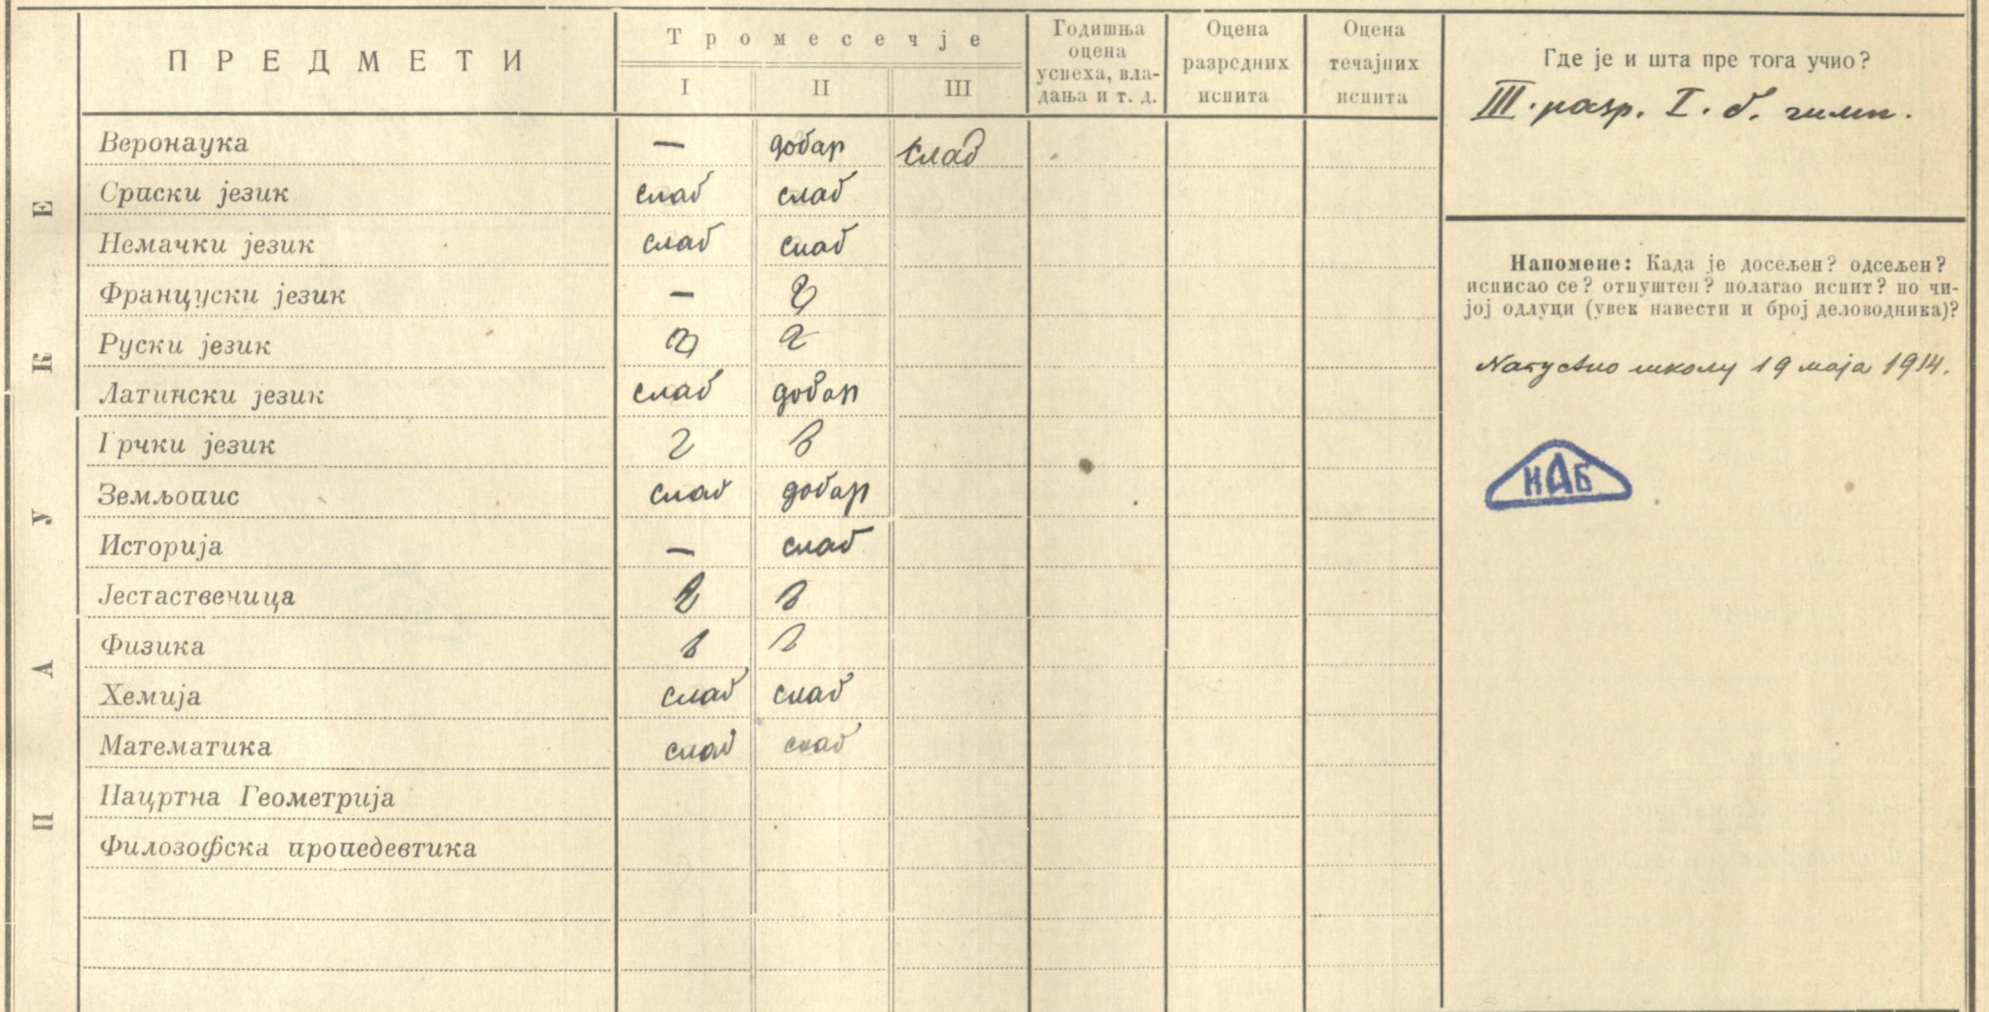 НАУКЕ
ПРЕДМЕТИ
Тромесечје
I II III
Годишња оцена успеха, вла-дања и т. д.
Оцена разредних испита
Оцена течајних испита
Где је и шта пре тога учио?
III. разр. I. б. гимн.
Веронаука — добар слаб
Српски језик слаб слаб
Немачки језик слаб слаб
Француски језик —
Руски језик
Латински језик слаб добар
Грчки језик
Земљопис слаб добар
Историја — слаб
Јестаственица
Физика
Хемија слаб слаб
Математика слаб слаб
Нацртна Геометрија
Филозофска пропедевтика
Напомене: Када је досељен? одсељен?
исписао се? отпуштен? полагао испит? по чи-
јој одлуци (увек навести и број деловодника)?
Напустио школу 19 маја 1914.
ИАБ